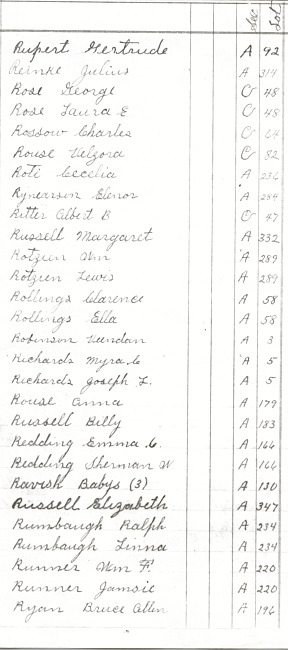 Sec Lot
Rupert Gertrude A 92
Reinke Julius A 314
Rose George C 48
Rose Laura E C 48
Rossow Charles C 64
Rouse Velzora C 82
Roti Cecelia A 236
Rynearson Elenor A 284
Ritter Albert B C 47
Russell Margaret A 332
Rotzien Wm A 289
Rotzien Lewis A 289
Rollings Clarence A 58
Rollings Ella A 58
Robinson A 3
Richards Myra C A 5
Richards Joseph L. A 5
Rouse Anna A 179
Russell Billy A 183
Redding Emma C. A 166
Redding Sherman W A 166
Ravish Babys (3) A 130
Russell Elizabeth A 347
Rumbaugh Ralph A 234
Rumbaugh Linna A 234
Runner Wm F. A 220
Runner Jamsie A 220
Ryan Bruce Allen A 196